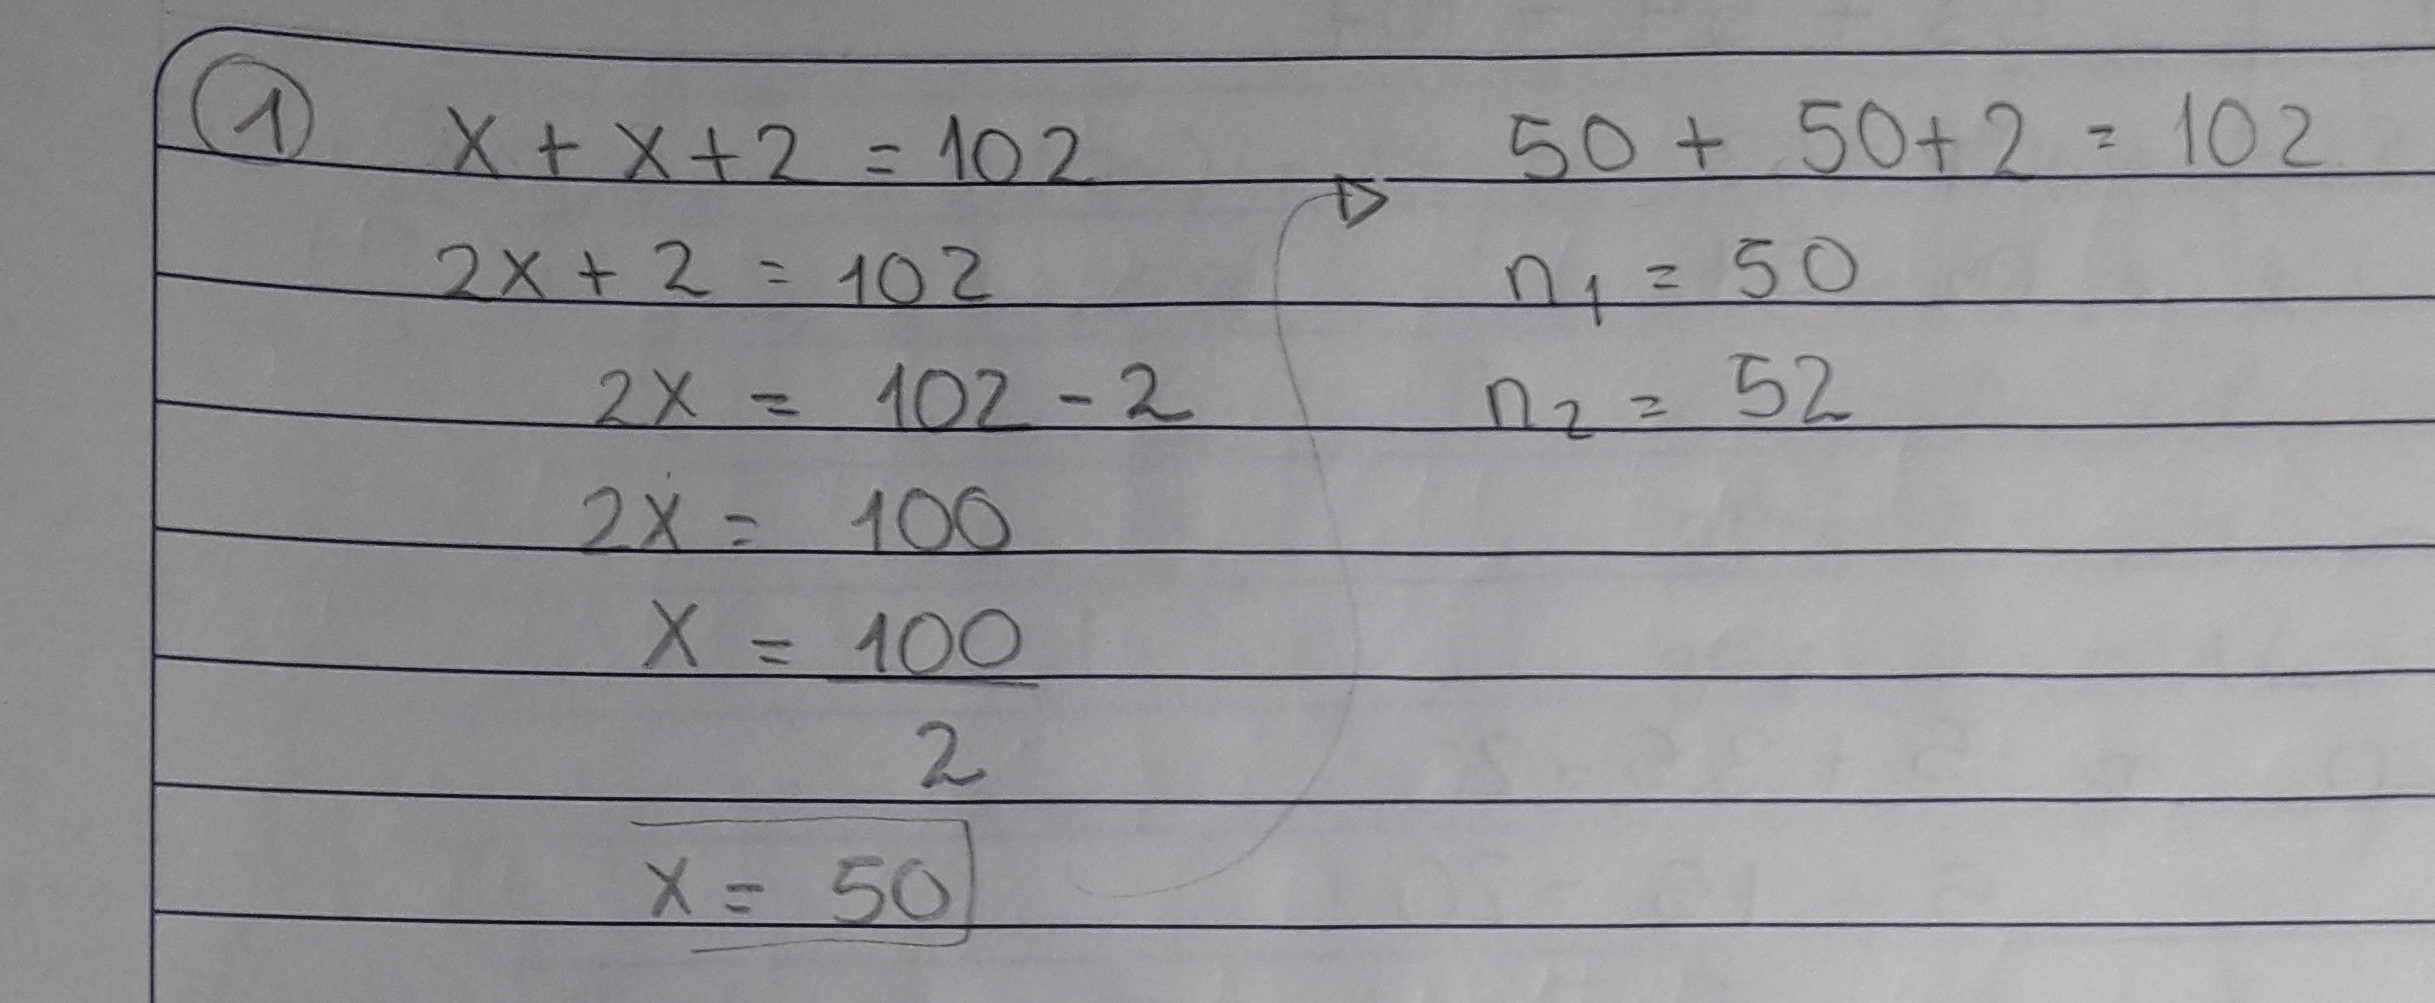 1 x + x + 2 = 102
2x + 2 = 102
2x = 102 - 2
2x = 100
x = 100
2
x = 50
50 + 50 + 2 = 102
n₁ = 50
n₂ = 52